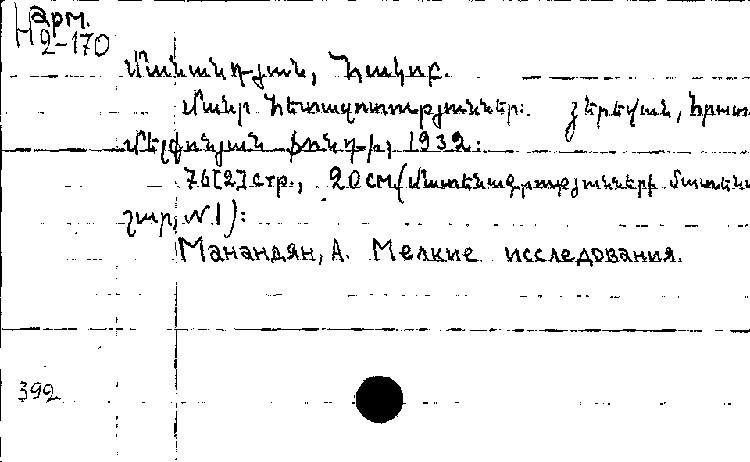 Арм.
Н 2-170
Մանանդյան, Հակոբ.
Մանր հետազոտություններ: Յերեվան, հրատ
Մելքոնյան ֆոնդի, 1932:
76[2] стр., 20 см (Մատենագրությունների մատեն
շար, №1):
Манандян, А. Мелкие исследования.
392